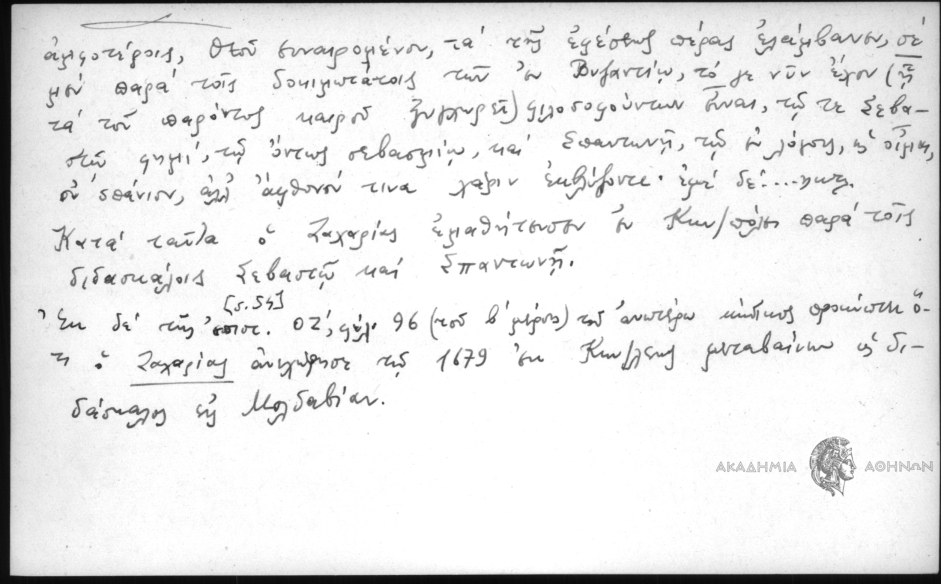 ἀμφοτέροις, Θεοῦ συναιρομένου, τὰ τῆς ἐφέσεως πέρας ἐλάμβανεν, σὲ
μὲν παρὰ τοῖς δοκιμωτάτοις τῶν ἐν Βυζαντίῳ, τό γε νῦν ἔχον (τῇ
τὰ τοῦ παρόντος καιροῦ) φιλοσοφούντων εἶναι, τῷ τε Σεβα-
στῷ φημί, τῷ ὄντως σεβασμίῳ, καὶ Σπαντωνῇ, τῷ ἐν λόγοις, ὡς οἶμαι,
οὐ σπάνιον, ἀλλ' ἄφθονόν τινα χάριν ἐκβλύζοντι· ἐμὲ δέ....κτλ.
Κατὰ ταῦτα ὁ Ζαχαρίας ἐμαθήτευσεν ἐν Κων/πόλει παρὰ τοῖς
διδασκάλοις Σεβαστῷ καὶ Σπαντωνῇ.
[σ.54]
Ἐκ δὲ τῆς ἐπιστ. ΟΖ', φύλ. 96 (τοῦ β' μέρους) τοῦ ἀνωτέρω κώδικος προκύπτει ὅ-
τι ὁ Ζαχαρίας ἀνεχώρησε τῷ 1679 ἐκ Κων/λεως μεταβαίνων ὡς δι-
δάσκαλος εἰς Μολδαβίαν.
ΑΚΑΔΗΜΙΑ ΑΘΗΝΩΝ